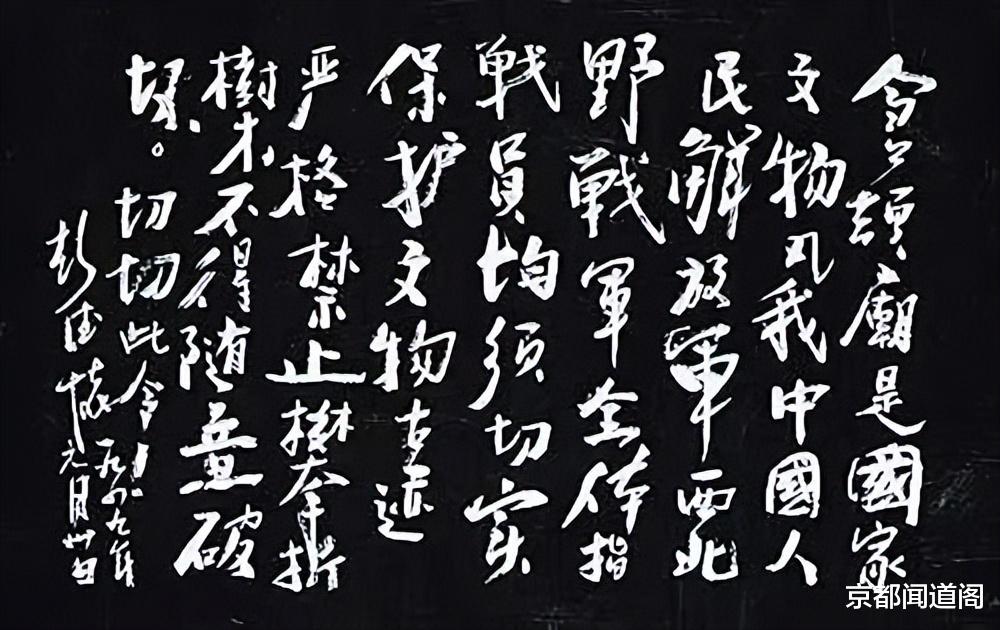 倉頡廟是國家
文物凡我中國人
民解放軍西北
野戦軍全体指
戦員均須切实
保护文物古迹
严格禁止攀折
樹木不得随意破
坏。切切此令 一九四九年
彭德怀 元月廿日
京都闻道阁